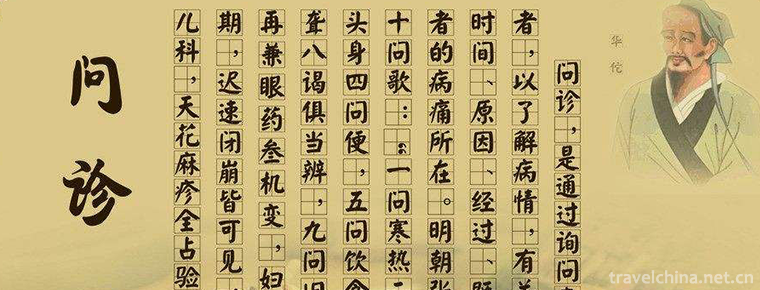 问诊
华佗
问诊，是通过询问
者，以了解病情，有
时间、原因、经过、
者的病痛所在。明朝
十问歌：“一问寒热二
头身四问便，五问饮
聋八谒俱当辨，九问
再兼眼药叁机变，妇
期，迟速闭崩皆可见，
儿科，天花麻疹全占验
travelchina.net.cn